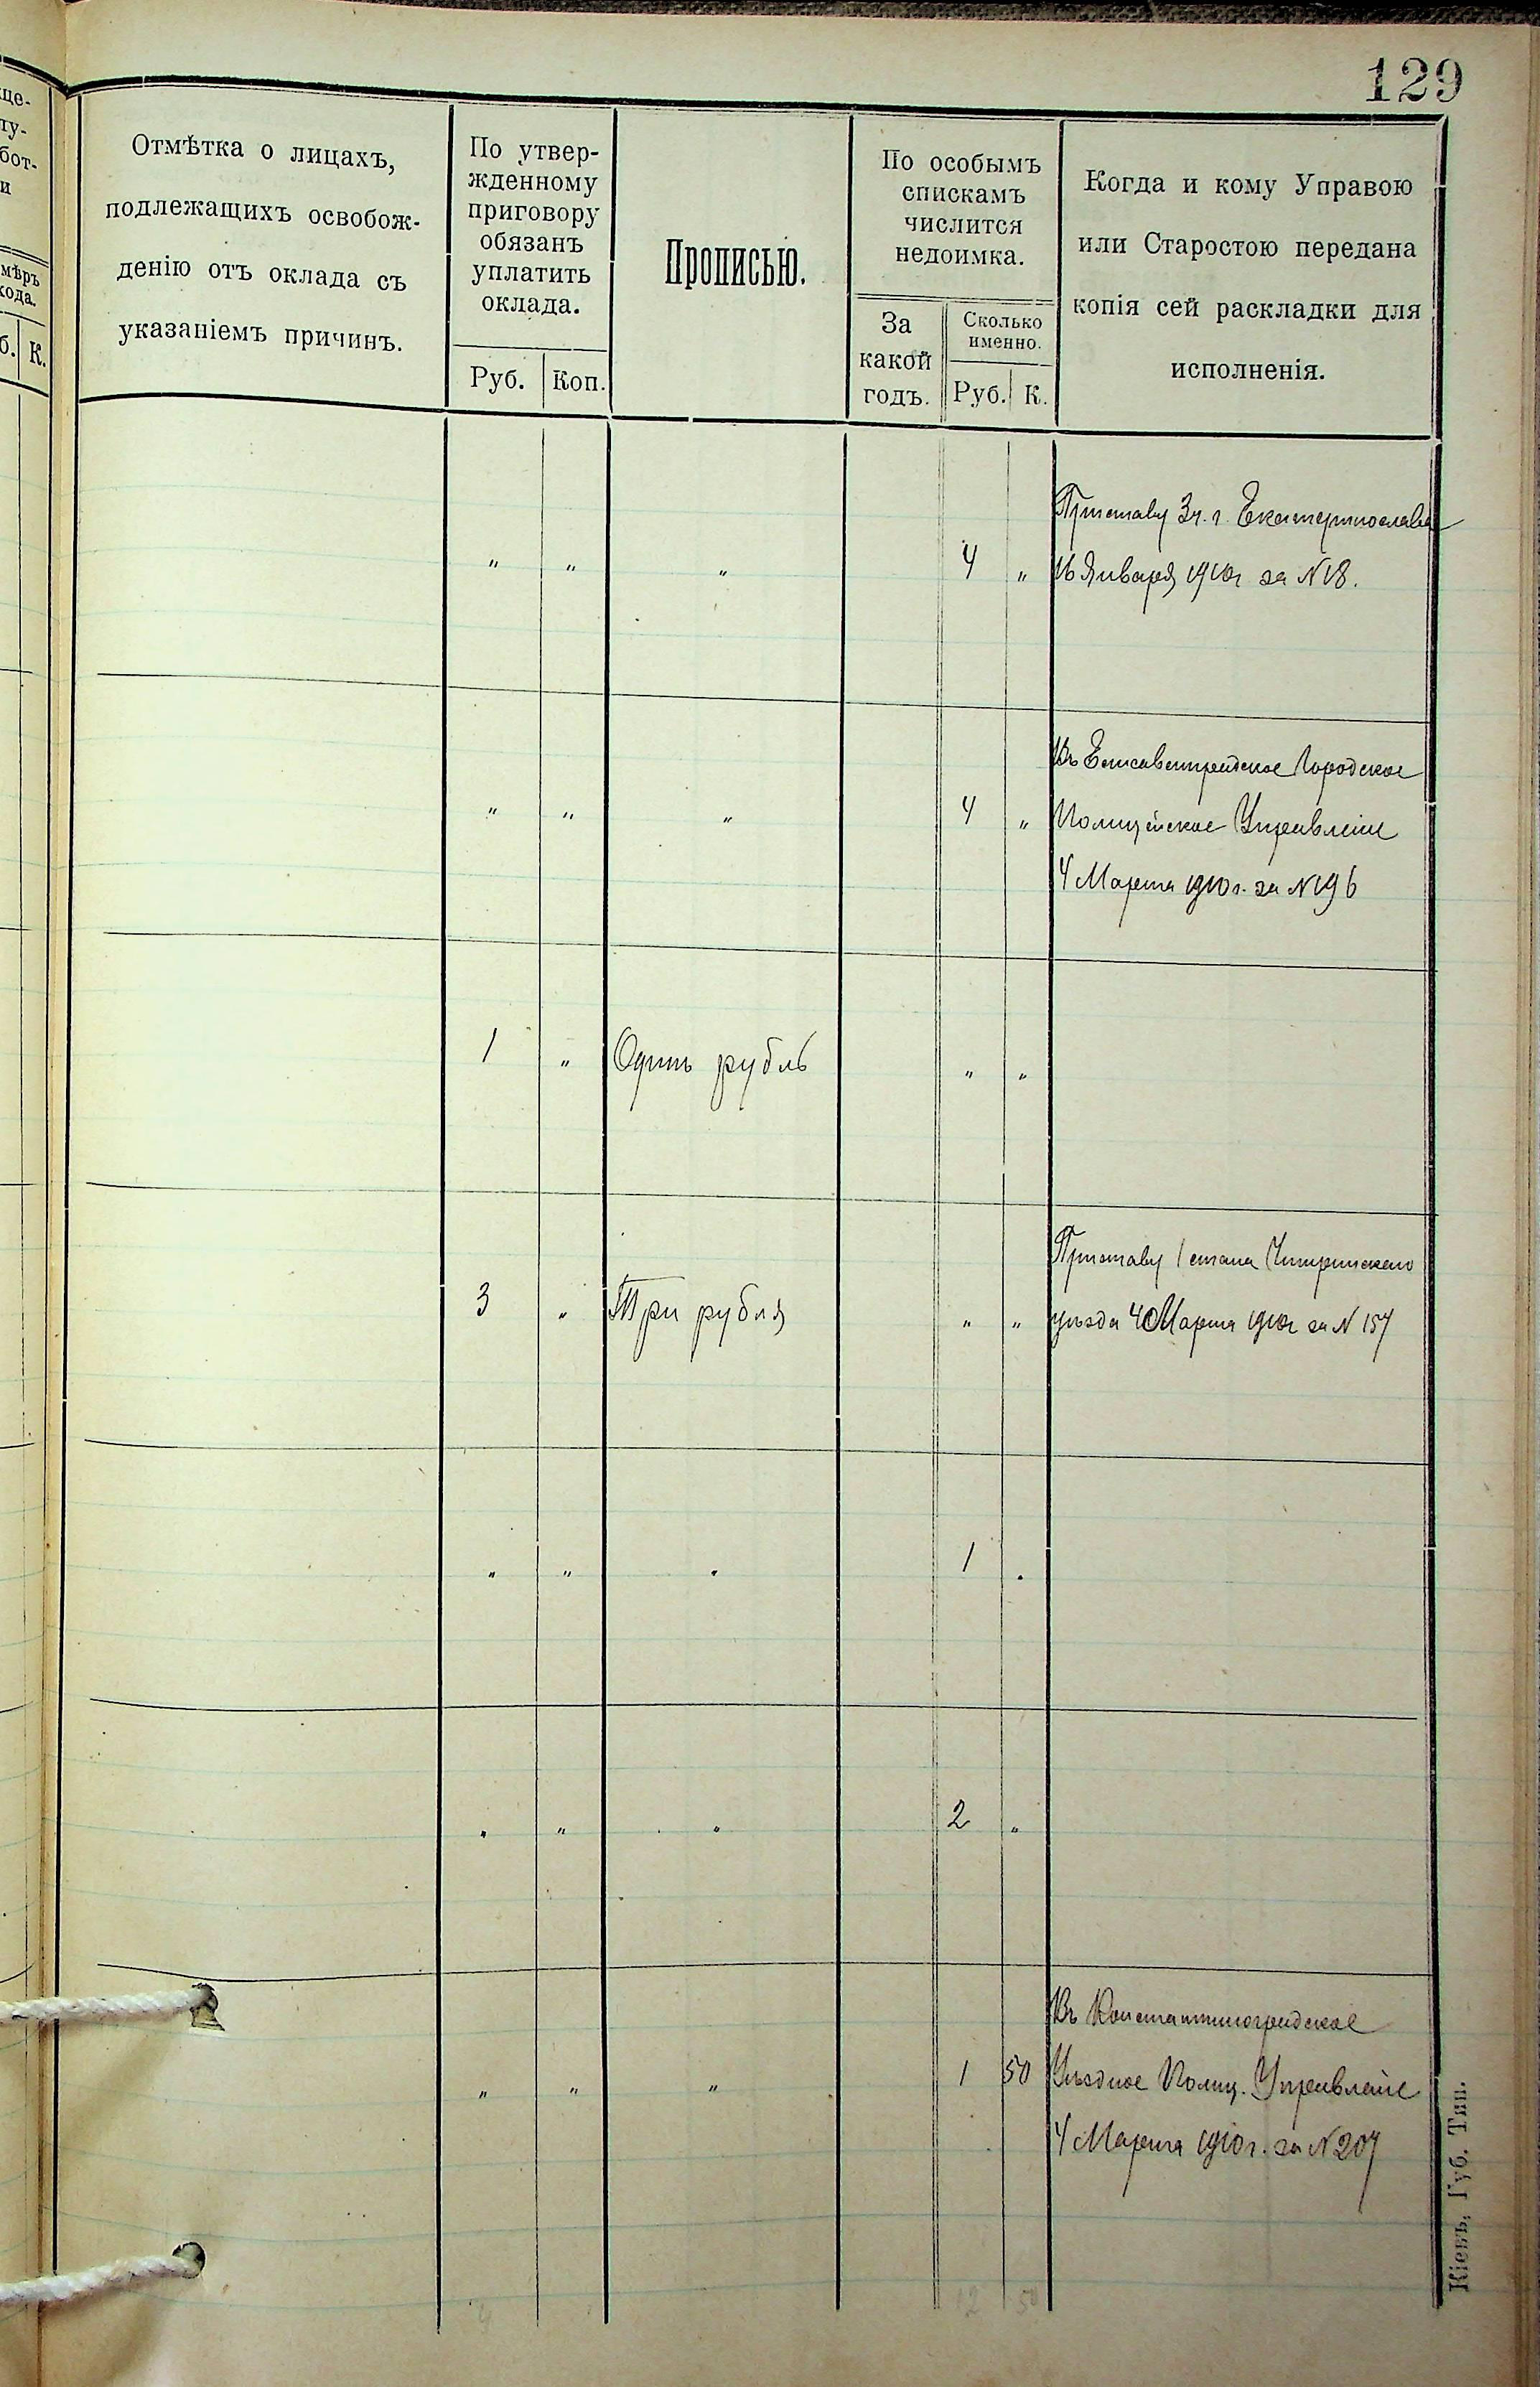 129
Отмѣтка о лицахъ,
подлежащихъ освобож-
денію отъ оклада съ
указаніемъ причинъ.
По утвер-
жденному
приговору
обязанъ
уплатить
оклада.
Руб. Коп.
Прописью.
По особымъ
спискамъ
числится
недоимка.
За
какой
годъ.
Сколько
именно.
Руб. К.
Когда и кому Управою
или Старостою передана
копія сей раскладки для
исполненія.
Приставу 3 ч. г. Екатеринослава
" " " 4 " 16 Января 1910 г за N 18.
Въ Елисаветградское Городское
" " " 4 " Полицейское Управленіе
4 Марта 1910 г. за N 196
1 " Одинъ рубль " "
Приставу 1 стана
3 " Три рубля " " уѣзда 4 Марта 1910 г за N 157
" " " 1 "
" " " 2 "
Въ Константиноградское
" " " 1 50 Уѣздное Полиц. Управленіе
4 Марта 1910 г. за N 207
4 12 50
Кіевъ, Губ. Тип.
це-
ту-
бот-
и
мѣръ
хода.
б. К.